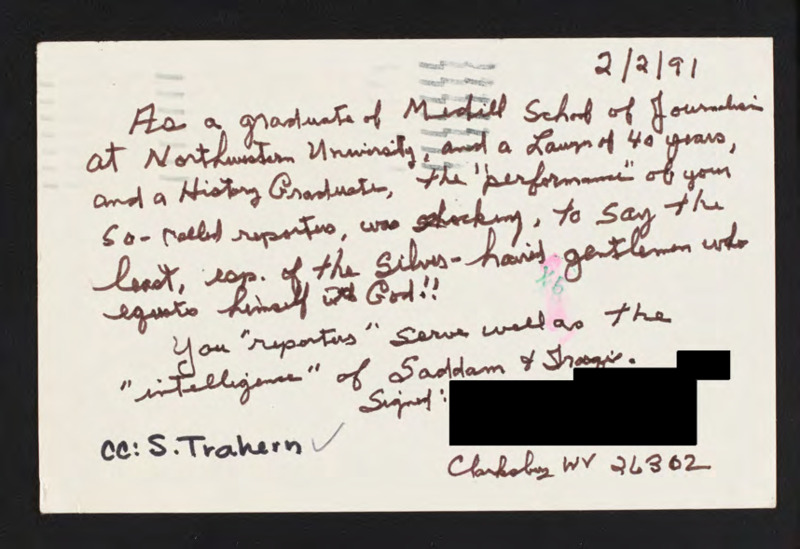 2/2/91
As a graduate of Medill School of Journalism
at Northwestern University, and a Lawyer of 40 years,
and a History Graduate, the "performance" of your
so-called reporters, was shocking, to say the
least, esp. of the silver-haired gentleman who
equates himself with God!!
+6
You "reporters" serve well as the
"intelligence" of Saddam & Iraqis.
Signed:
cc: S. Trahern ✓
Clarksburg WV 26302